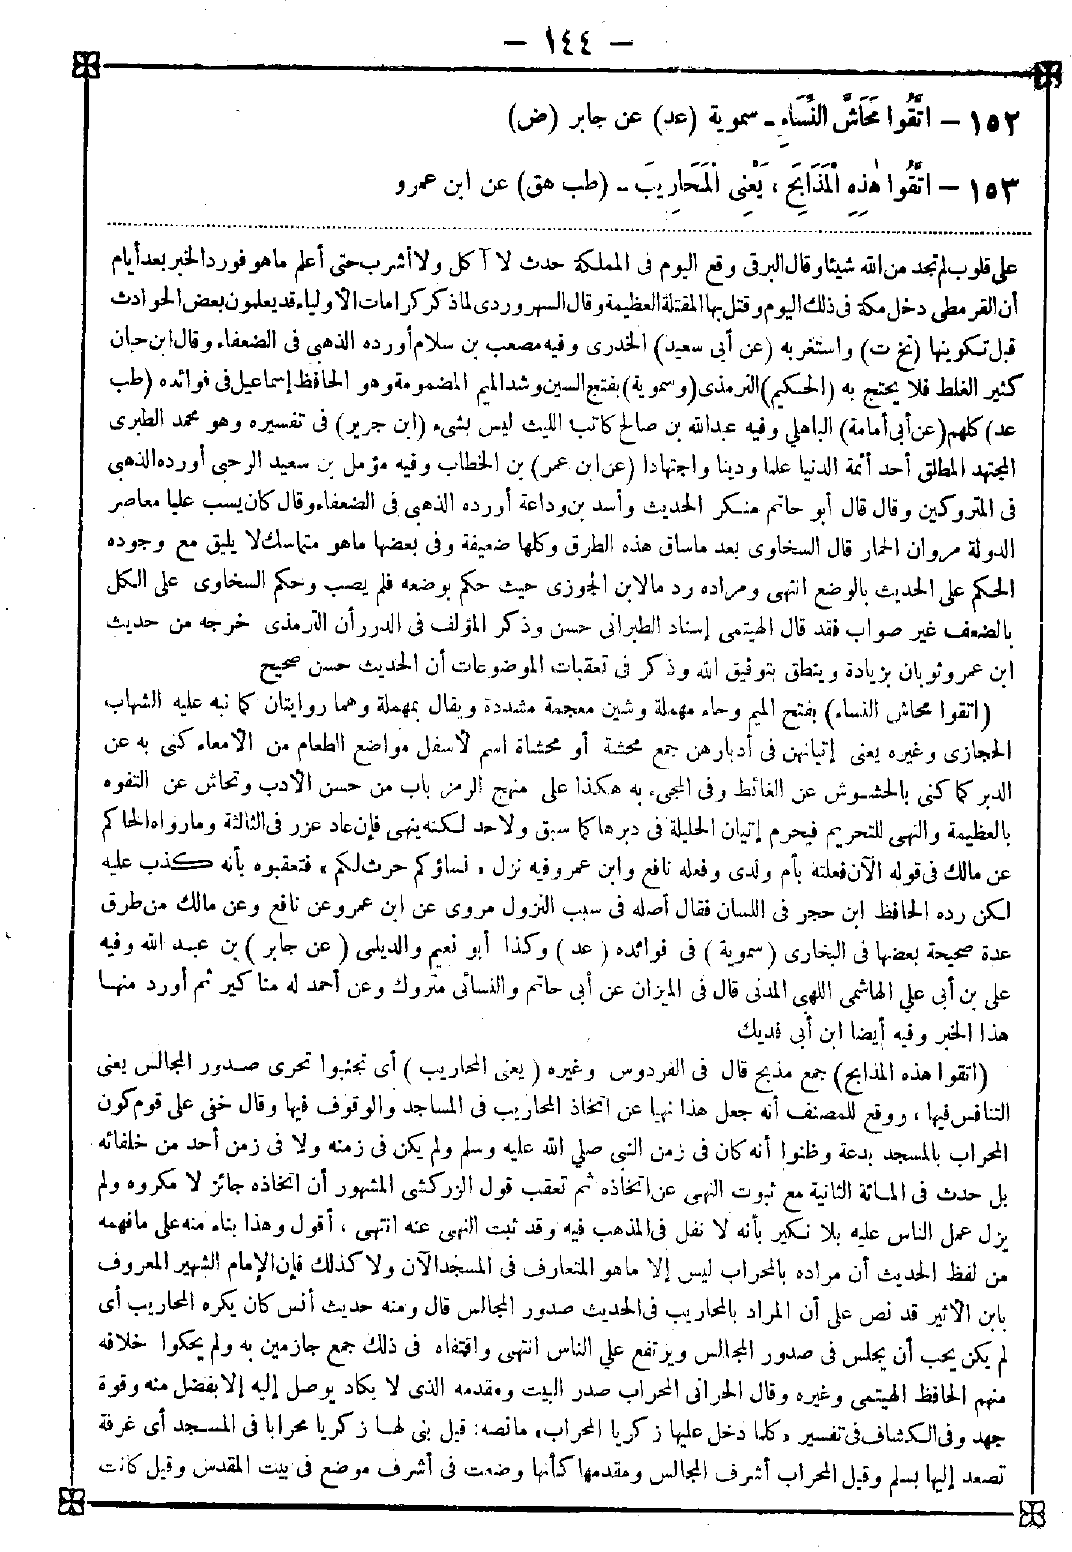 — ١٤٤ —
١٥٢ — اتَّقُوا مَحَاشَّ النِّسَاءِ - سموية (عد) عن جابر (ض)
١٥٣ — اتَّقُوا هٰذِهِ الْمَذَابِحَ ، يَعْنِى الْمَحَارِيبَ - (طب هق) عن ابن عمرو
على قلوب لم تجد من الله شيئا وقال البرقى وقع اليوم فى المملكة حدث لا آكل ولا أشرب حتى أعلم ما هو فورد الخبر بعد أيام
أن القرمطى دخل مكة فى ذلك اليوم وقتل بها المقتلة العظيمة وقال السهروردى لما ذكر كرامات الأولياء قد يعلمون بعض الحوادث
قبل تكوينها (تخ ت) واستغربه (عن أبى سعيد) الخدرى وفيه مصعب بن سلام أورده الذهبى فى الضعفاء وقال ابن حبان
كثير الغلط فلا يحتج به (الحكيم) الترمذى (وسموية) بفتح السين وشد الميم المضمومة وهو الحافظ إسماعيل فى فوائده (طب
عد) كلهم (عن أبى أمامة) الباهلى وفيه عبدالله بن صالح كاتب الليث ليس بشىء (ابن جرير) فى تفسيره وهو محمد الطبرى
المجتهد المطلق أحد أئمة الدنيا علما ودينا واجتهادا (عن ابن عمر) بن الخطاب وفيه مؤمل بن سعيد الرحبى أورده الذهبى
فى المتروكين وقال قال أبو حاتم منكر الحديث وأسد بن وداعة أورده الذهبى فى الضعفاء وقال كان يسب عليا معاصر
الدولة مروان الحمار قال السخاوى بعد ما ساق هذه الطرق وكلها ضعيفة وفى بعضها ما هو متماسك لا يليق مع وجوده
الحكم على الحديث بالوضع انتهى ومراده رد ما لابن الجوزى حيث حكم بوضعه فلم يصب وحكم السخاوى على الكل
بالضعف غير صواب فقد قال الهيتمى إسناد الطبرانى حسن وذكر المؤلف فى الدرر أن الترمذى خرجه من حديث
ابن عمر وثوبان بزيادة وينطق بتوفيق الله وذكر فى تعقبات الموضوعات أن الحديث حسن صحيح
(اتقوا محاش النساء) بفتح الميم وحاء مهملة وشين معجمة مشددة ويقال بمهملة وهما روايتان كما نبه عليه الشهاب
الحجازى وغيره يعنى إتيانهن فى أدبارهن جمع محشة أو محشاة اسم لأسفل مواضع الطعام من الأمعاء كنى به عن
الدبر كما كنى بالحشوش عن الغائط وفى المجىء به هكذا على منهج الرمز باب من حسن الأدب وتحاش عن التفوه
بالعظيمة والنهى للتحريم فيحرم إتيان الحليلة فى دبرها كما سبق ولا حد لكنه ينهى فإن عاد عزر فى الثالثة وما رواه الحاكم
عن مالك فى قوله الآن فعلته بأم ولدى وفعله نافع وابن عمر وفيه نزل « نساؤكم حرث لكم » فتعقبوه بأنه كذب عليه
لكن رده الحافظ ابن حجر فى اللسان فقال أصله فى سبب النزول مروى عن ابن عمر وعن نافع وعن مالك من طرق
عدة صحيحة بعضها فى البخارى (سموية) فى فوائده (عد) وكذا أبو نعيم والديلمى (عن جابر) بن عبد الله وفيه
على بن أبى على الهاشمى اللهبى المدنى قال فى الميزان عن أبى حاتم والنسائى متروك وعن أحمد له مناكير ثم أورد منها
هذا الخبر وفيه أيضا ابن أبى فديك
(اتقوا هذه المذابح) جمع مذبح قال فى الفردوس وغيره (يعنى المحاريب) أى تجنبوا تحرى صدور المجالس يعنى
التنافس فيها ، ووقع للمصنف أنه جعل هذا نهيا عن اتخاذ المحاريب فى المساجد والوقوف فيها وقال خفى على قوم كون
المحراب بالمسجد بدعة وظنوا أنه كان فى زمن النبى صلى الله عليه وسلم ولم يكن فى زمنه ولا فى زمن أحد من خلفائه
بل حدث فى المائة الثانية مع ثبوت النهى عن اتخاذه ثم تعقب قول الزركشى المشهور أن اتخاذه جائز لا مكروه ولم
يزل عمل الناس عليه بلا نكير بأنه لا نقل فى المذهب فيه وقد ثبت النهى عنه انتهى ، أقول وهذا بناء منه على ما فهمه
من لفظ الحديث أن مراده بالمحراب ليس إلا ما هو المتعارف فى المسجد الآن ولا كذلك فإن الإمام الشهير المعروف
بابن الأثير قد نص على أن المراد بالمحاريب فى الحديث صدور المجالس قال ومنه حديث أنس كان يكره المحاريب أى
لم يكن يحب أن يجلس فى صدور المجالس ويرتفع على الناس انتهى واقتفاه فى ذلك جمع جازمين به ولم يحكوا خلافه
منهم الحافظ الهيتمى وغيره وقال الحرانى المحراب صدر البيت ومقدمه الذى لا يكاد يوصل إليه إلا بفضل منه وقوة
جهد وفى الكشاف فى تفسير « كلما دخل عليها زكريا المحراب » ما نصه : قيل بنى لها زكريا محرابا فى المسجد أى غرفة
تصعد إليها بسلم وقيل المحراب أشرف المجالس ومقدمها كأنها وضعت فى أشرف موضع فى بيت المقدس وقيل كانت